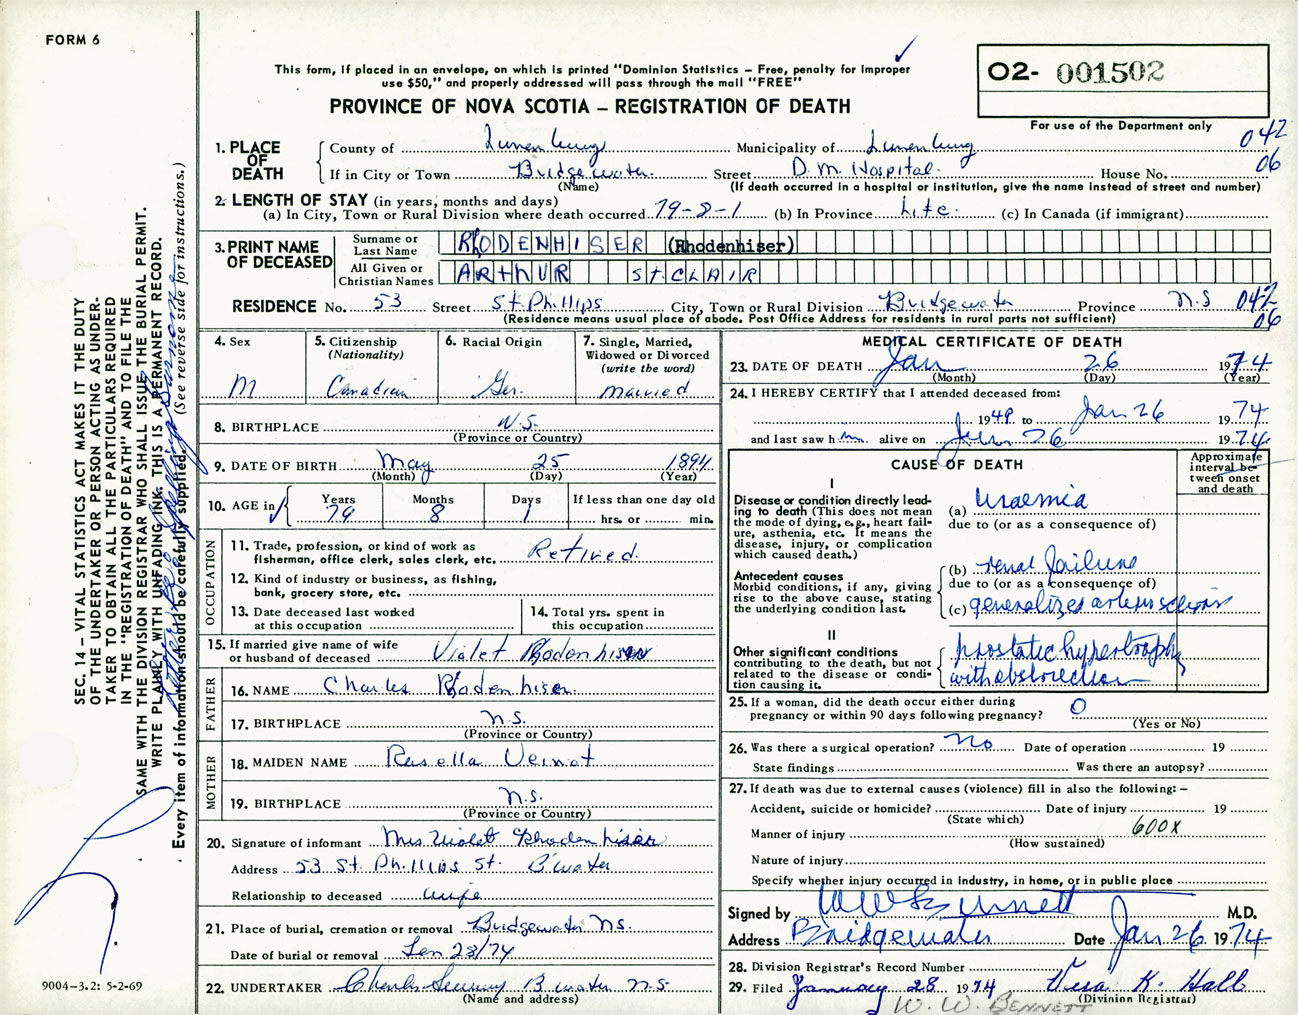 FORM 6
This form, if placed in an envelope, on which is printed "Dominion Statistics – Free, penalty for improper
use $50," and properly addressed will pass through the mail "FREE"
PROVINCE OF NOVA SCOTIA – REGISTRATION OF DEATH
O2- 001502
For use of the Department only
042
06
1. PLACE OF DEATH
County of Lunenburg Municipality of Lunenburg
If in City or Town Bridgewater Street D.M. Hospital. House No.
(Name) (If death occurred in a hospital or institution, give the name instead of street and number)
2. LENGTH OF STAY (in years, months and days)
(a) In City, Town or Rural Division where death occurred 79-8-1 (b) In Province Life. (c) In Canada (if immigrant)
3. PRINT NAME OF DECEASED
Surname or Last Name RhODENHISER (Rhodenhiser)
All Given or Christian Names ARThUR St.CLAIR
RESIDENCE No. 53 Street St.Phillips City, Town or Rural Division Bridgewater Province N.S 042
06
(Residence means usual place of abode. Post Office Address for residents in rural parts not sufficient)
4. Sex
M
5. Citizenship
(Nationality)
Canadian
6. Racial Origin
Ger.
7. Single, Married,
Widowed or Divorced
(write the word)
married
8. BIRTHPLACE N.S.
(Province or Country)
9. DATE OF BIRTH May 25 1894
(Month) (Day) (Year)
10. AGE in
Years Months Days If less than one day old
79 8 1 hrs. or min.
OCCUPATION
11. Trade, profession, or kind of work as
fisherman, office clerk, sales clerk, etc. Retired.
12. Kind of industry or business, as fishing,
bank, grocery store, etc.
13. Date deceased last worked
at this occupation
14. Total yrs. spent in
this occupation
15. If married give name of wife
or husband of deceased Violet Rhodenhiser
FATHER
16. NAME Charles Rhodenhiser.
17. BIRTHPLACE N.S.
(Province or Country)
MOTHER
18. MAIDEN NAME Rosella Veinot
19. BIRTHPLACE N.S.
(Province or Country)
20. Signature of informant Mrs Violet Rhodenhiser
Address 53 St. Phillips St. B'water
Relationship to deceased wife
21. Place of burial, cremation or removal Bridgewater N.S.
Date of burial or removal Jan 28/74
22. UNDERTAKER B'water N.S.
(Name and address)
MEDICAL CERTIFICATE OF DEATH
23. DATE OF DEATH Jan 26 1974
(Month) (Day) (Year)
24. I HEREBY CERTIFY that I attended deceased from:
1948 to Jan 26 1974
and last saw him alive on Jan 26 1974
CAUSE OF DEATH
Approximate
interval be-
tween onset
and death
I
Disease or condition directly lead-
ing to death (This does not
mean the mode of dying, e.g., heart fail-
ure, asthenia, etc. It means the
disease, injury, or complication
which caused death.)
(a) Uraemia
due to (or as a consequence of)
Antecedent causes
Morbid conditions, if any, giving
rise to the above cause, stating
the underlying condition last.
(b) renal failure
due to (or as a consequence of)
(c) generalized arteriosclerosis
II
Other significant conditions
contributing to the death, but not
related to the disease or condi-
tion causing it.
prostatic hypertrophy
with obstruction
25. If a woman, did the death occur either during
pregnancy or within 90 days following pregnancy? 0
(Yes or No)
26. Was there a surgical operation? No Date of operation 19
State findings Was there an autopsy?
27. If death was due to external causes (violence) fill in also the following: –
Accident, suicide or homicide? Date of injury 19
(State which)
Manner of injury 600x
(How sustained)
Nature of injury
Specify whether injury occurred in industry, in home, or in public place
Signed by W W Bennett M.D.
Address Bridgewater Date Jan 26 1974
28. Division Registrar's Record Number
29. Filed January 28 1974 Vera K. Hall
(Division Registrar)
W. W. BENNETT
SEC. 14 – VITAL STATISTICS ACT MAKES IT THE DUTY
OF THE UNDERTAKER OR PERSON ACTING AS UNDER-
TAKER TO OBTAIN ALL THE PARTICULARS REQUIRED
IN THE "REGISTRATION OF DEATH" AND TO FILE THE
SAME WITH THE DIVISION REGISTRAR WHO SHALL ISSUE THE BURIAL PERMIT.
WRITE PLAINLY WITH UNFADING INK. THIS IS A PERMANENT RECORD.
Every item of information should be carefully supplied. (See reverse side for instructions.)
9004-3.2: 5-2-69